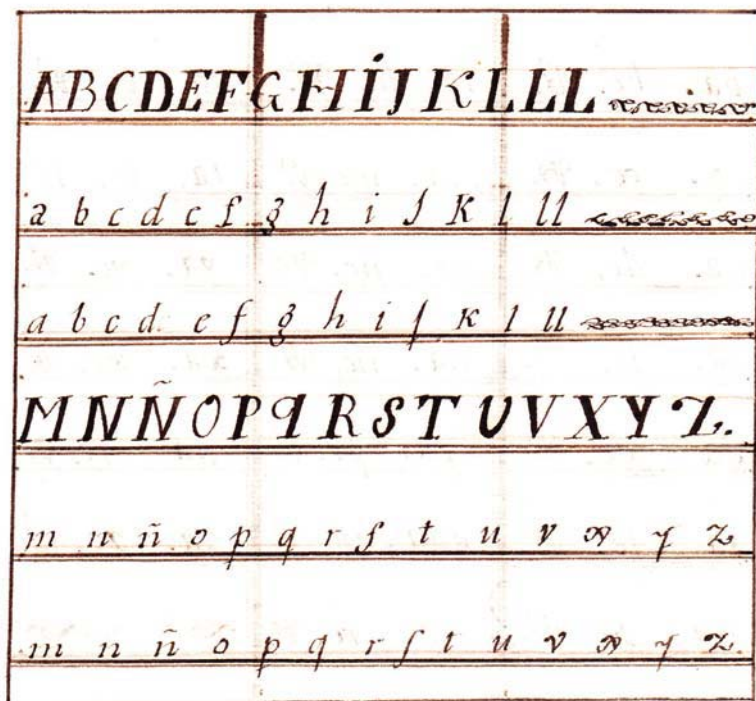 A B C D E F G H İ J K L L L
a b c d e f g h i J K l ll
a b c d. e f g h i ſ K l ll
M N Ñ O P q R S T U V X Y Z.
m n ñ o p q r ſ t u v x y z
m n ñ o p q r ſ t u v x y z